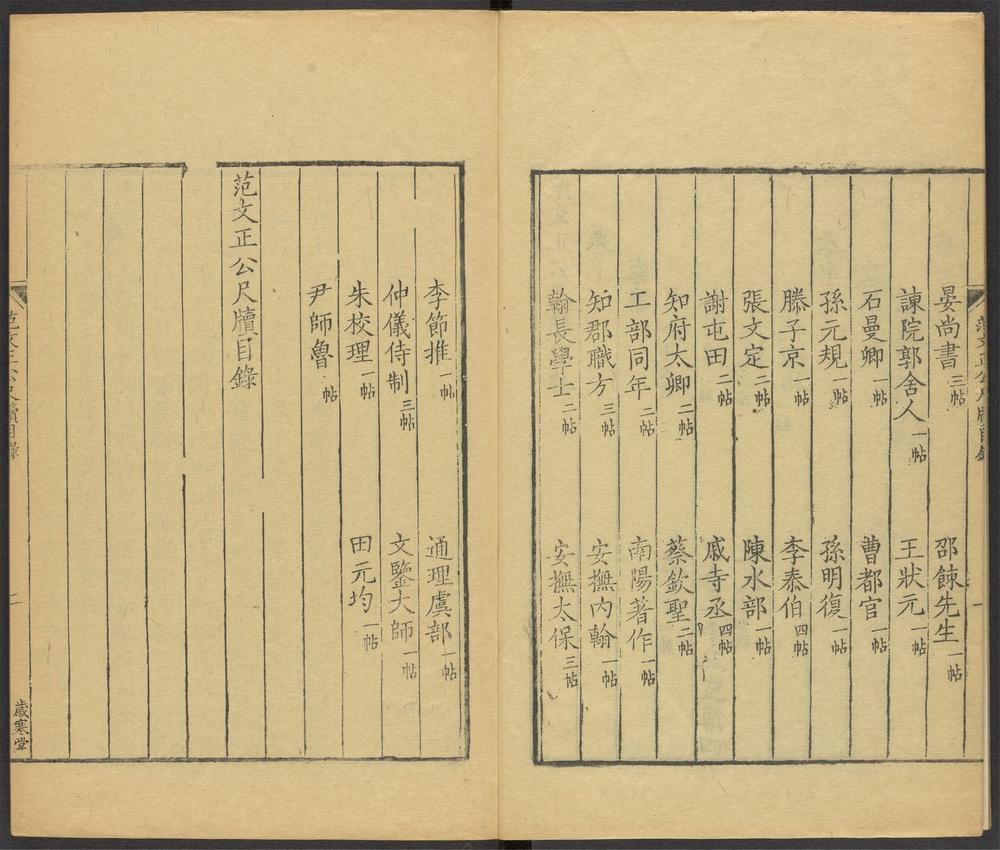 晏尚書三帖 邵餗先生一帖
諫院郭舍人一帖 王狀元一帖
石曼卿一帖 曹都官一帖
孫元規一帖 孫明復一帖
滕子京一帖 李泰伯四帖
張文定二帖 陳水部一帖
謝屯田二帖 戚寺丞四帖
知府太卿二帖 蔡欽聖二帖
工部同年二帖 南陽著作一帖
知郡職方三帖 安撫內翰一帖
翰長學士二帖 安撫太保三帖
李節推一帖 通理虞部一帖
仲儀待制三帖 文鑒大師一帖
朱校理一帖 田元均一帖
尹師魯一帖
范文正公尺牘目錄
范文正公尺牘目錄
一
范文正公尺牘目錄
二
歲寒堂